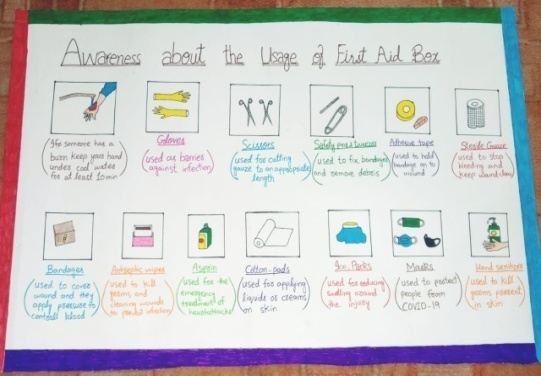 Awareness about the Usage of First Aid Box
If someone has a
burn keep your hand
under cool water
for at least 10 min
Gloves
used as barries
against infection
Scissors
used for cutting
gauze to an appropriate
length
Safety pins &
used to fix bandages
and remove debris
Adhesive tape
used to hold
bandage on to
wound
Sterile Gauze
used to stop
bleeding and
keep wound clean
Bandages
used to cover
wound and they
apply pressure to
control blood
Antiseptic wipes
used to kill
germs and
cleaning wounds
to prevent infection
Aspirin
used for the
emergency
treatment of
heartattacks
Cotton-pads
used for applying
liquids or creams
on skin
Ice Packs
used for reducing
swelling around
the injury
Masks
used to protect
people from
COVID-19
Hand sanitizer
used to kill
germs present
in skin